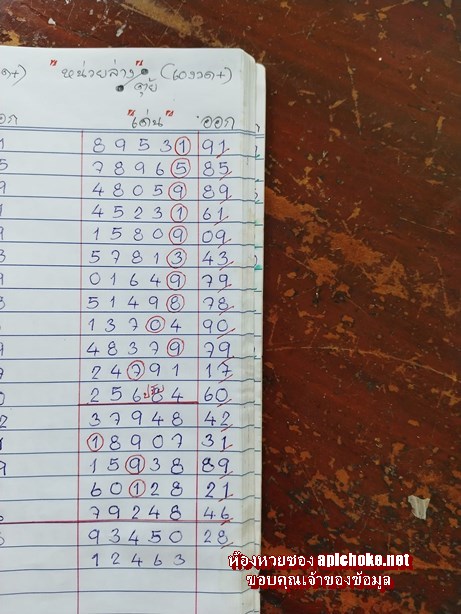 ด+) "หน่วยล่าง" (60งวด+)
คุ้ย
อก "เด่น" ออก
1 8 9 5 3 1 91
5 7 8 9 6 5 85
9 4 8 0 5 9 89
4 5 2 3 1 61
9 1 5 8 0 9 09
3 5 7 8 1 3 43
9 0 1 6 4 9 79
8 5 1 4 9 8 78
1 3 7 0 4 90
9 4 8 3 7 9 79
7 2 4 7 9 1 17
0 2 5 6 8 4 60
2 3 7 9 4 8 42
1 8 9 0 7 31
9 1 5 9 3 8 89
6 0 1 2 8 21
7 9 2 4 8 46
3 9 3 4 5 0 28
1 2 4 6 3
ห้องหวยซอง apichoke.net
ขอบคุณเจ้าของข้อมูล